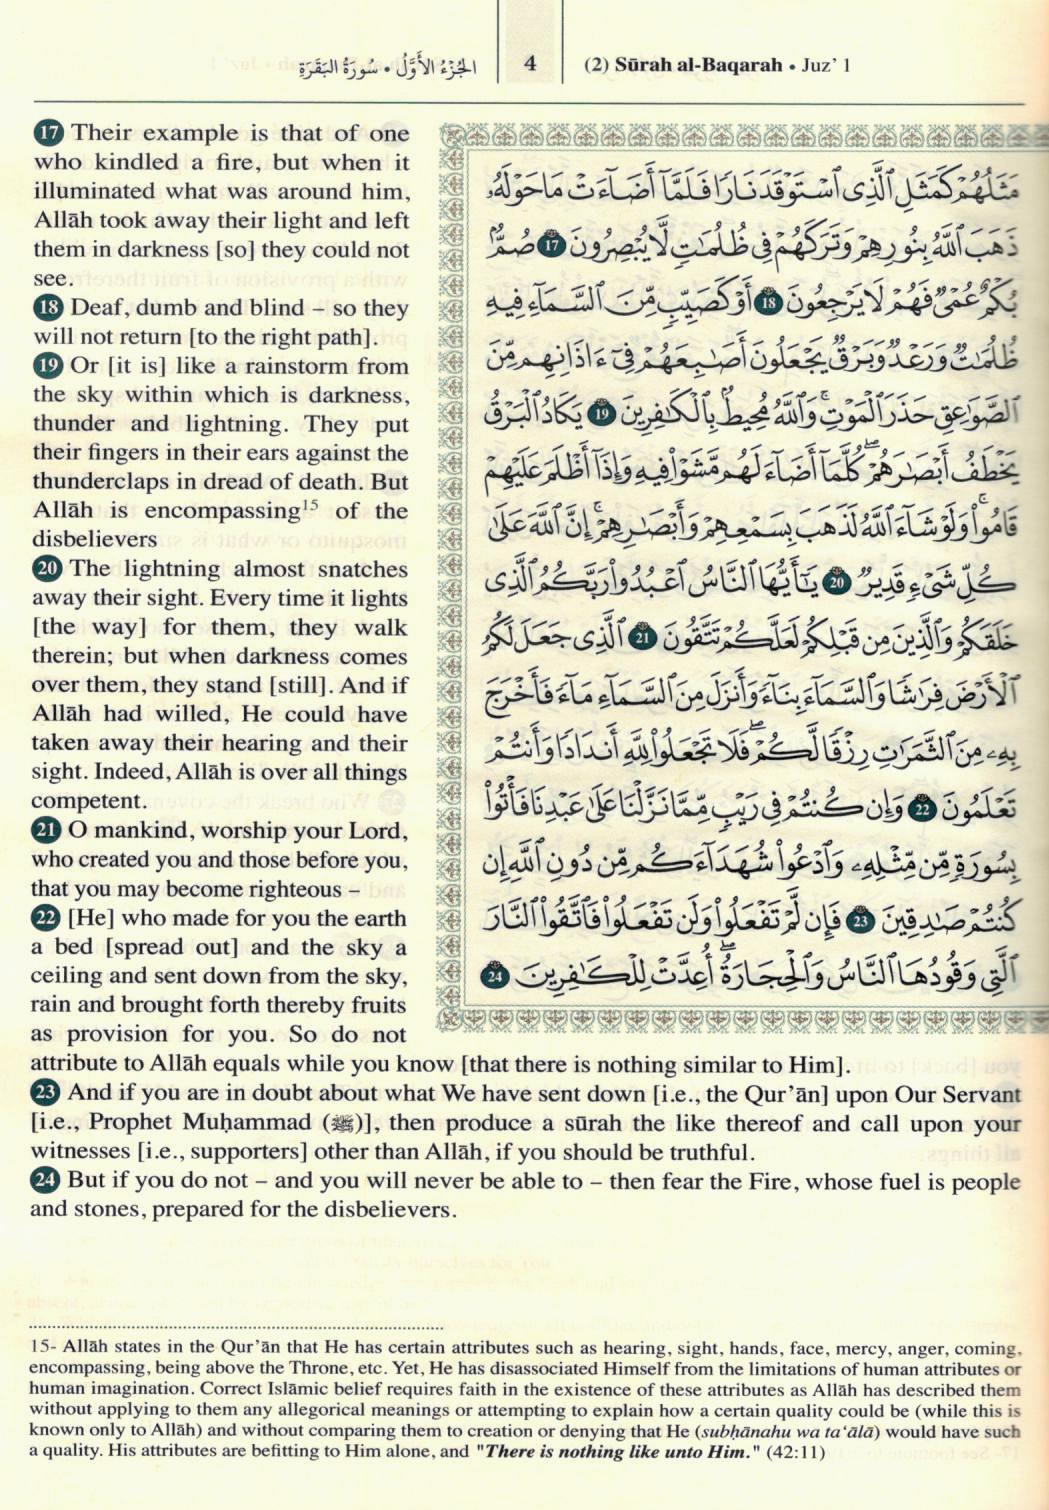 الجُزْءُ الأَوَّلُ • سُورَةُ البَقَرَةِ
4
(2) Sūrah al-Baqarah • Juz’ 1
17 Their example is that of one
who kindled a fire, but when it
illuminated what was around him,
Allāh took away their light and left
them in darkness [so] they could not
see.
18 Deaf, dumb and blind – so they
will not return [to the right path].
19 Or [it is] like a rainstorm from
the sky within which is darkness,
thunder and lightning. They put
their fingers in their ears against the
thunderclaps in dread of death. But
Allāh is encompassing¹⁵ of the
disbelievers
20 The lightning almost snatches
away their sight. Every time it lights
[the way] for them, they walk
therein; but when darkness comes
over them, they stand [still]. And if
Allāh had willed, He could have
taken away their hearing and their
sight. Indeed, Allāh is over all things
competent.
21 O mankind, worship your Lord,
who created you and those before you,
that you may become righteous –
22 [He] who made for you the earth
a bed [spread out] and the sky a
ceiling and sent down from the sky,
rain and brought forth thereby fruits
as provision for you. So do not
attribute to Allāh equals while you know [that there is nothing similar to Him].
23 And if you are in doubt about what We have sent down [i.e., the Qur’ān] upon Our Servant
[i.e., Prophet Muḥammad (ﷺ)], then produce a sūrah the like thereof and call upon your
witnesses [i.e., supporters] other than Allāh, if you should be truthful.
24 But if you do not – and you will never be able to – then fear the Fire, whose fuel is people
and stones, prepared for the disbelievers.
مَثَلُهُمْ كَمَثَلِ ٱلَّذِى ٱسْتَوْقَدَ نَارًا فَلَمَّآ أَضَآءَتْ مَا حَوْلَهُۥ
ذَهَبَ ٱللَّهُ بِنُورِهِمْ وَتَرَكَهُمْ فِى ظُلُمَٰتٍ لَّا يُبْصِرُونَ 17 صُمٌّۢ
بُكْمٌ عُمْىٌ فَهُمْ لَا يَرْجِعُونَ 18 أَوْ كَصَيِّبٍ مِّنَ ٱلسَّمَآءِ فِيهِ
ظُلُمَٰتٌ وَرَعْدٌ وَبَرْقٌ يَجْعَلُونَ أَصَٰبِعَهُمْ فِىٓ ءَاذَانِهِم مِّنَ
ٱلصَّوَٰعِقِ حَذَرَ ٱلْمَوْتِ ۚ وَٱللَّهُ مُحِيطٌۢ بِٱلْكَٰفِرِينَ 19 يَكَادُ ٱلْبَرْقُ
يَخْطَفُ أَبْصَٰرَهُمْ ۖ كُلَّمَآ أَضَآءَ لَهُم مَّشَوْا۟ فِيهِ وَإِذَآ أَظْلَمَ عَلَيْهِمْ
قَامُوا۟ ۚ وَلَوْ شَآءَ ٱللَّهُ لَذَهَبَ بِسَمْعِهِمْ وَأَبْصَٰرِهِمْ ۚ إِنَّ ٱللَّهَ عَلَىٰ
كُلِّ شَىْءٍ قَدِيرٌ 20 يَٰٓأَيُّهَا ٱلنَّاسُ ٱعْبُدُوا۟ رَبَّكُمُ ٱلَّذِى
خَلَقَكُمْ وَٱلَّذِينَ مِن قَبْلِكُمْ لَعَلَّكُمْ تَتَّقُونَ 21 ٱلَّذِى جَعَلَ لَكُمُ
ٱلْأَرْضَ فِرَٰشًا وَٱلسَّمَآءَ بِنَآءً وَأَنزَلَ مِنَ ٱلسَّمَآءِ مَآءً فَأَخْرَجَ
بِهِۦ مِنَ ٱلثَّمَرَٰتِ رِزْقًا لَّكُمْ ۖ فَلَا تَجْعَلُوا۟ لِلَّهِ أَندَادًا وَأَنتُمْ
تَعْلَمُونَ 22 وَإِن كُنتُمْ فِى رَيْبٍ مِّمَّا نَزَّلْنَا عَلَىٰ عَبْدِنَا فَأْتُوا۟
بِسُورَةٍ مِّن مِّثْلِهِۦ وَٱدْعُوا۟ شُهَدَآءَكُم مِّن دُونِ ٱللَّهِ إِن
كُنتُمْ صَٰدِقِينَ 23 فَإِن لَّمْ تَفْعَلُوا۟ وَلَن تَفْعَلُوا۟ فَٱتَّقُوا۟ ٱلنَّارَ
ٱلَّتِى وَقُودُهَا ٱلنَّاسُ وَٱلْحِجَارَةُ ۖ أُعِدَّتْ لِلْكَٰفِرِينَ 24
15- Allāh states in the Qur’ān that He has certain attributes such as hearing, sight, hands, face, mercy, anger, coming,
encompassing, being above the Throne, etc. Yet, He has disassociated Himself from the limitations of human attributes or
human imagination. Correct Islāmic belief requires faith in the existence of these attributes as Allāh has described them
without applying to them any allegorical meanings or attempting to explain how a certain quality could be (while this is
known only to Allāh) and without comparing them to creation or denying that He (subḥānahu wa ta‘ālā) would have such
a quality. His attributes are befitting to Him alone, and "There is nothing like unto Him." (42:11)